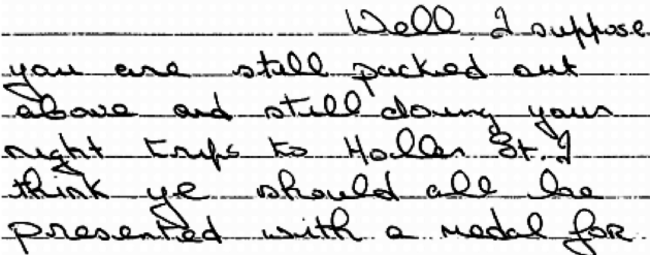 Well. I suppose
you are still packed out
above and still doing your
night trips to Holles St. I
think ye should all be
presented with a medal for